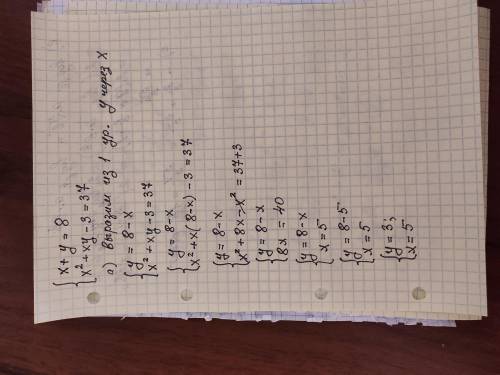 { x + y = 8
{ x² + xy - 3 = 37
а) выразим из 1 ур. у через х
{ y = 8 - x
{ x² + xy - 3 = 37
{ y = 8 - x
{ x² + x(8-x) - 3 = 37
{ y = 8 - x
{ x² + 8x - x² = 37+3
{ y = 8 - x
{ 8x = 40
{ y = 8 - x
{ x = 5
{ y = 8 - 5
{ x = 5
{ y = 3;
{ x = 5